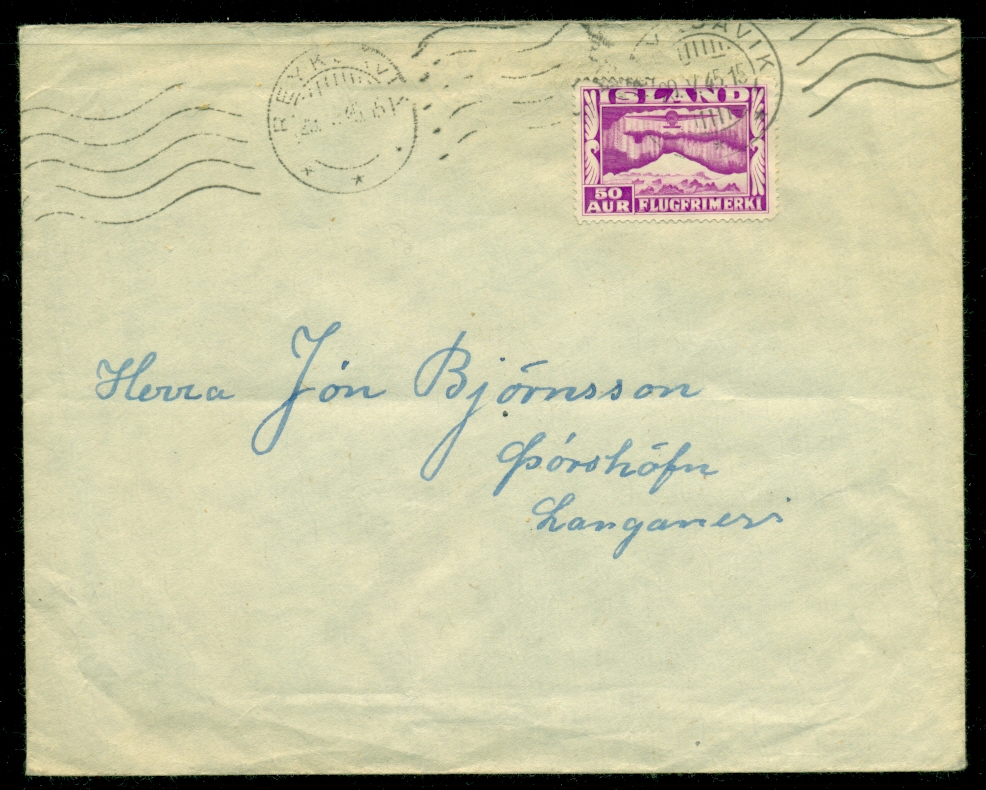 REYKJAVIK
JAVIK
45.15
ISLAND
50
AUR FLUGFRIMERKI
Herra Jón Björnsson
Þórshöfn
Langanesi